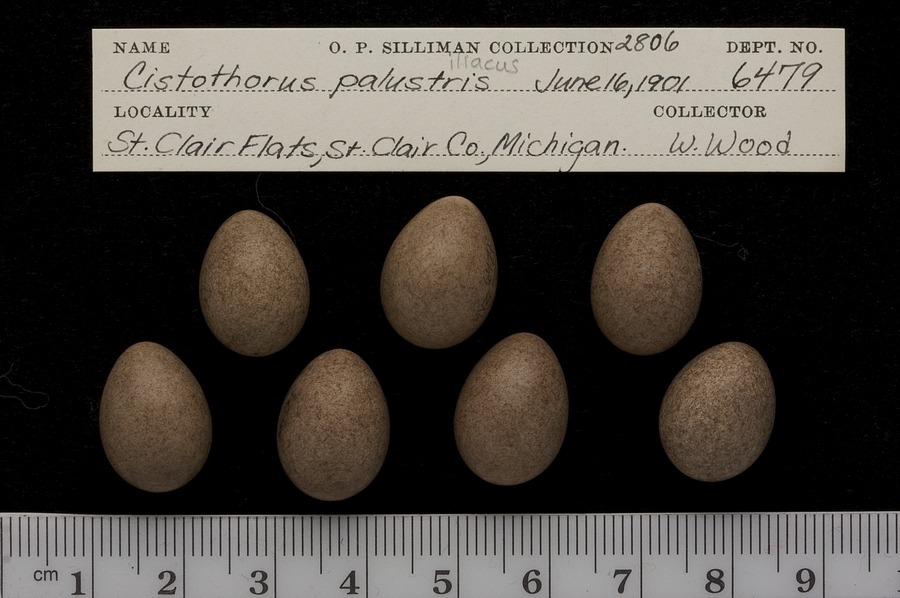 NAME O. P. SILLIMAN COLLECTION 2806 DEPT. NO.
iliacus
Cistothorus palustris June 16, 1901 6479
LOCALITY COLLECTOR
St. Clair Flats, St. Clair Co., Michigan. W. Wood
cm 1 2 3 4 5 6 7 8 9